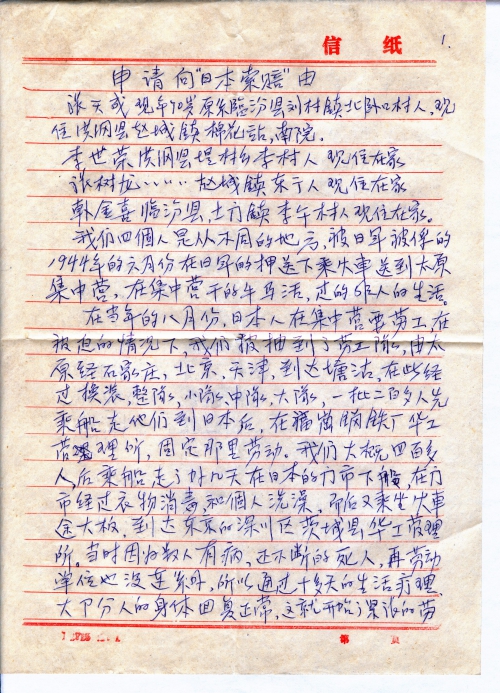 信 纸
1.
申请向"日本索赔"由
张天成 现年70岁原系临汾县刘村镇北卧口村人,现
住洪洞县赵城镇棉花站,南院.
李世荣洪洞县堤村乡李村人 现住在家
张树龙……赵城镇东亍人 现住在家
韩金喜临汾县,土门镇李午村人现住在家。
我们四個人是从不同的地方,被日军被俘的
1944年的六月份在日军的押送下乘火車送到太原
集中营,在集中营干的牛马活,过的非人的生活。
在当年的八月份,日本人在集中营要劳工,在
被迫的情况下,我们被抽到了劳工队,由太
原经石家庄,北京,天津,到达塘沽,在此经
过换装,整队,小队中队大队,一批二百多人先
乘船走他们到日本后,在福岗钢铁厂华工
管理所,固定那里劳动。我们大概四百多
人,后乘船走了好几天在日本的门市下船 在门
市经过衣物消毒和個人洗澡,而后又乘坐火車
途大板,到达东京的深川区茨城县华工管理
所。当时因为数人有病,还不断的死人,再劳动
单位也没连系好,所以通过十多天的生活疗理,
大部分人的身体回复正常,这就开始了深谈的劳
第 页